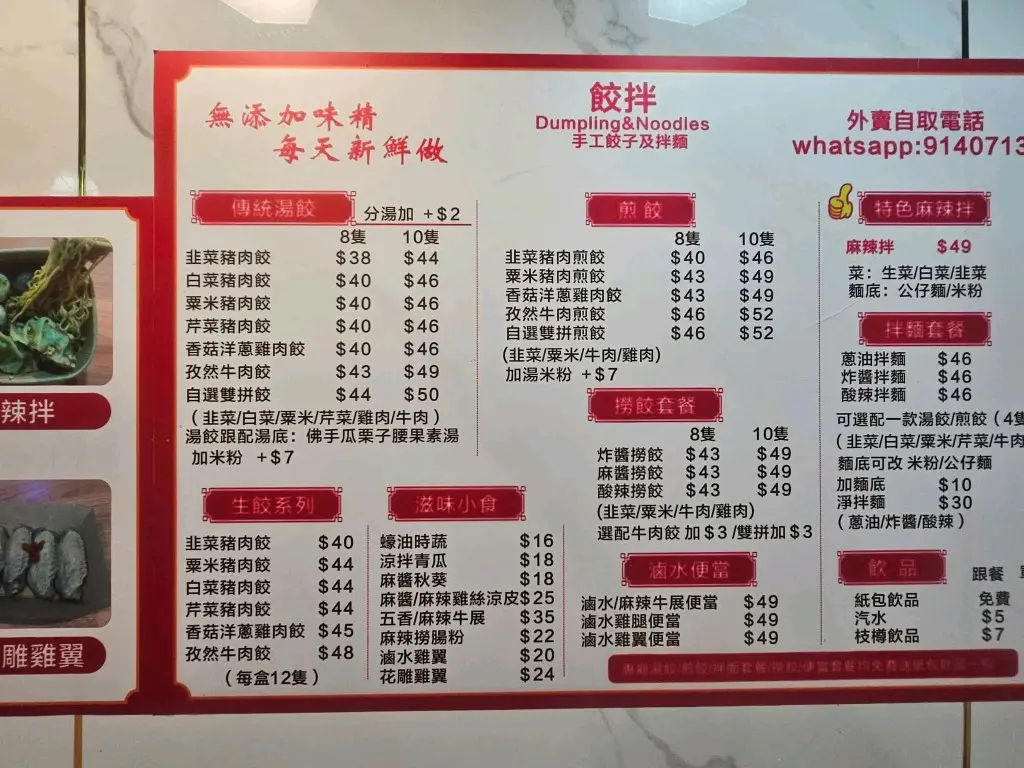 無添加味精
每天新鮮做
餃拌
Dumpling&Noodles
手工餃子及拌麵
外賣自取電話
whatsapp:9140713
傳統湯餃 分湯加 +$2
8隻 10隻
韭菜豬肉餃 $38 $44
白菜豬肉餃 $40 $46
粟米豬肉餃 $40 $46
芹菜豬肉餃 $40 $46
香菇洋蔥雞肉餃 $40 $46
孜然牛肉餃 $43 $49
自選雙拼餃 $44 $50
(韭菜/白菜/粟米/芹菜/雞肉/牛肉)
湯餃跟配湯底：佛手瓜栗子腰果素湯
加米粉 +$7
煎餃
8隻 10隻
韭菜豬肉煎餃 $40 $46
粟米豬肉煎餃 $43 $49
香菇洋蔥雞肉餃 $43 $49
孜然牛肉煎餃 $46 $52
自選雙拼煎餃 $46 $52
(韭菜/粟米/牛肉/雞肉)
加湯米粉 +$7
撈餃套餐
8隻 10隻
炸醬撈餃 $43 $49
麻醬撈餃 $43 $49
酸辣撈餃 $43 $49
(韭菜/粟米/牛肉/雞肉)
選配牛肉餃 加$3/雙拼加$3
特色麻辣拌
麻辣拌 $49
菜：生菜/白菜/韭菜
麵底：公仔麵/米粉
拌麵套餐
蔥油拌麵 $46
炸醬拌麵 $46
酸辣拌麵 $46
可選配一款湯餃/煎餃（4隻
(韭菜/白菜/粟米/芹菜/牛肉
麵底可改 米粉/公仔麵
加麵底 $10
淨拌麵 $30
(蔥油/炸醬/酸辣)
生餃系列
韭菜豬肉餃 $40
粟米豬肉餃 $44
白菜豬肉餃 $44
芹菜豬肉餃 $44
香菇洋蔥雞肉餃 $45
孜然牛肉餃 $48
（每盒12隻）
滋味小食
蠔油時蔬 $16
涼拌青瓜 $18
麻醬秋葵 $18
麻醬/麻辣雞絲涼皮$25
五香/麻辣牛展 $35
麻辣撈腸粉 $22
滷水雞翼 $20
花雕雞翼 $24
滷水便當
滷水/麻辣牛展便當 $49
滷水雞腿便當 $49
滷水雞翼便當 $49
飲品 跟餐
紙包飲品 免費
汽水 $5
枝樽飲品 $7
辣拌
雕雞翼